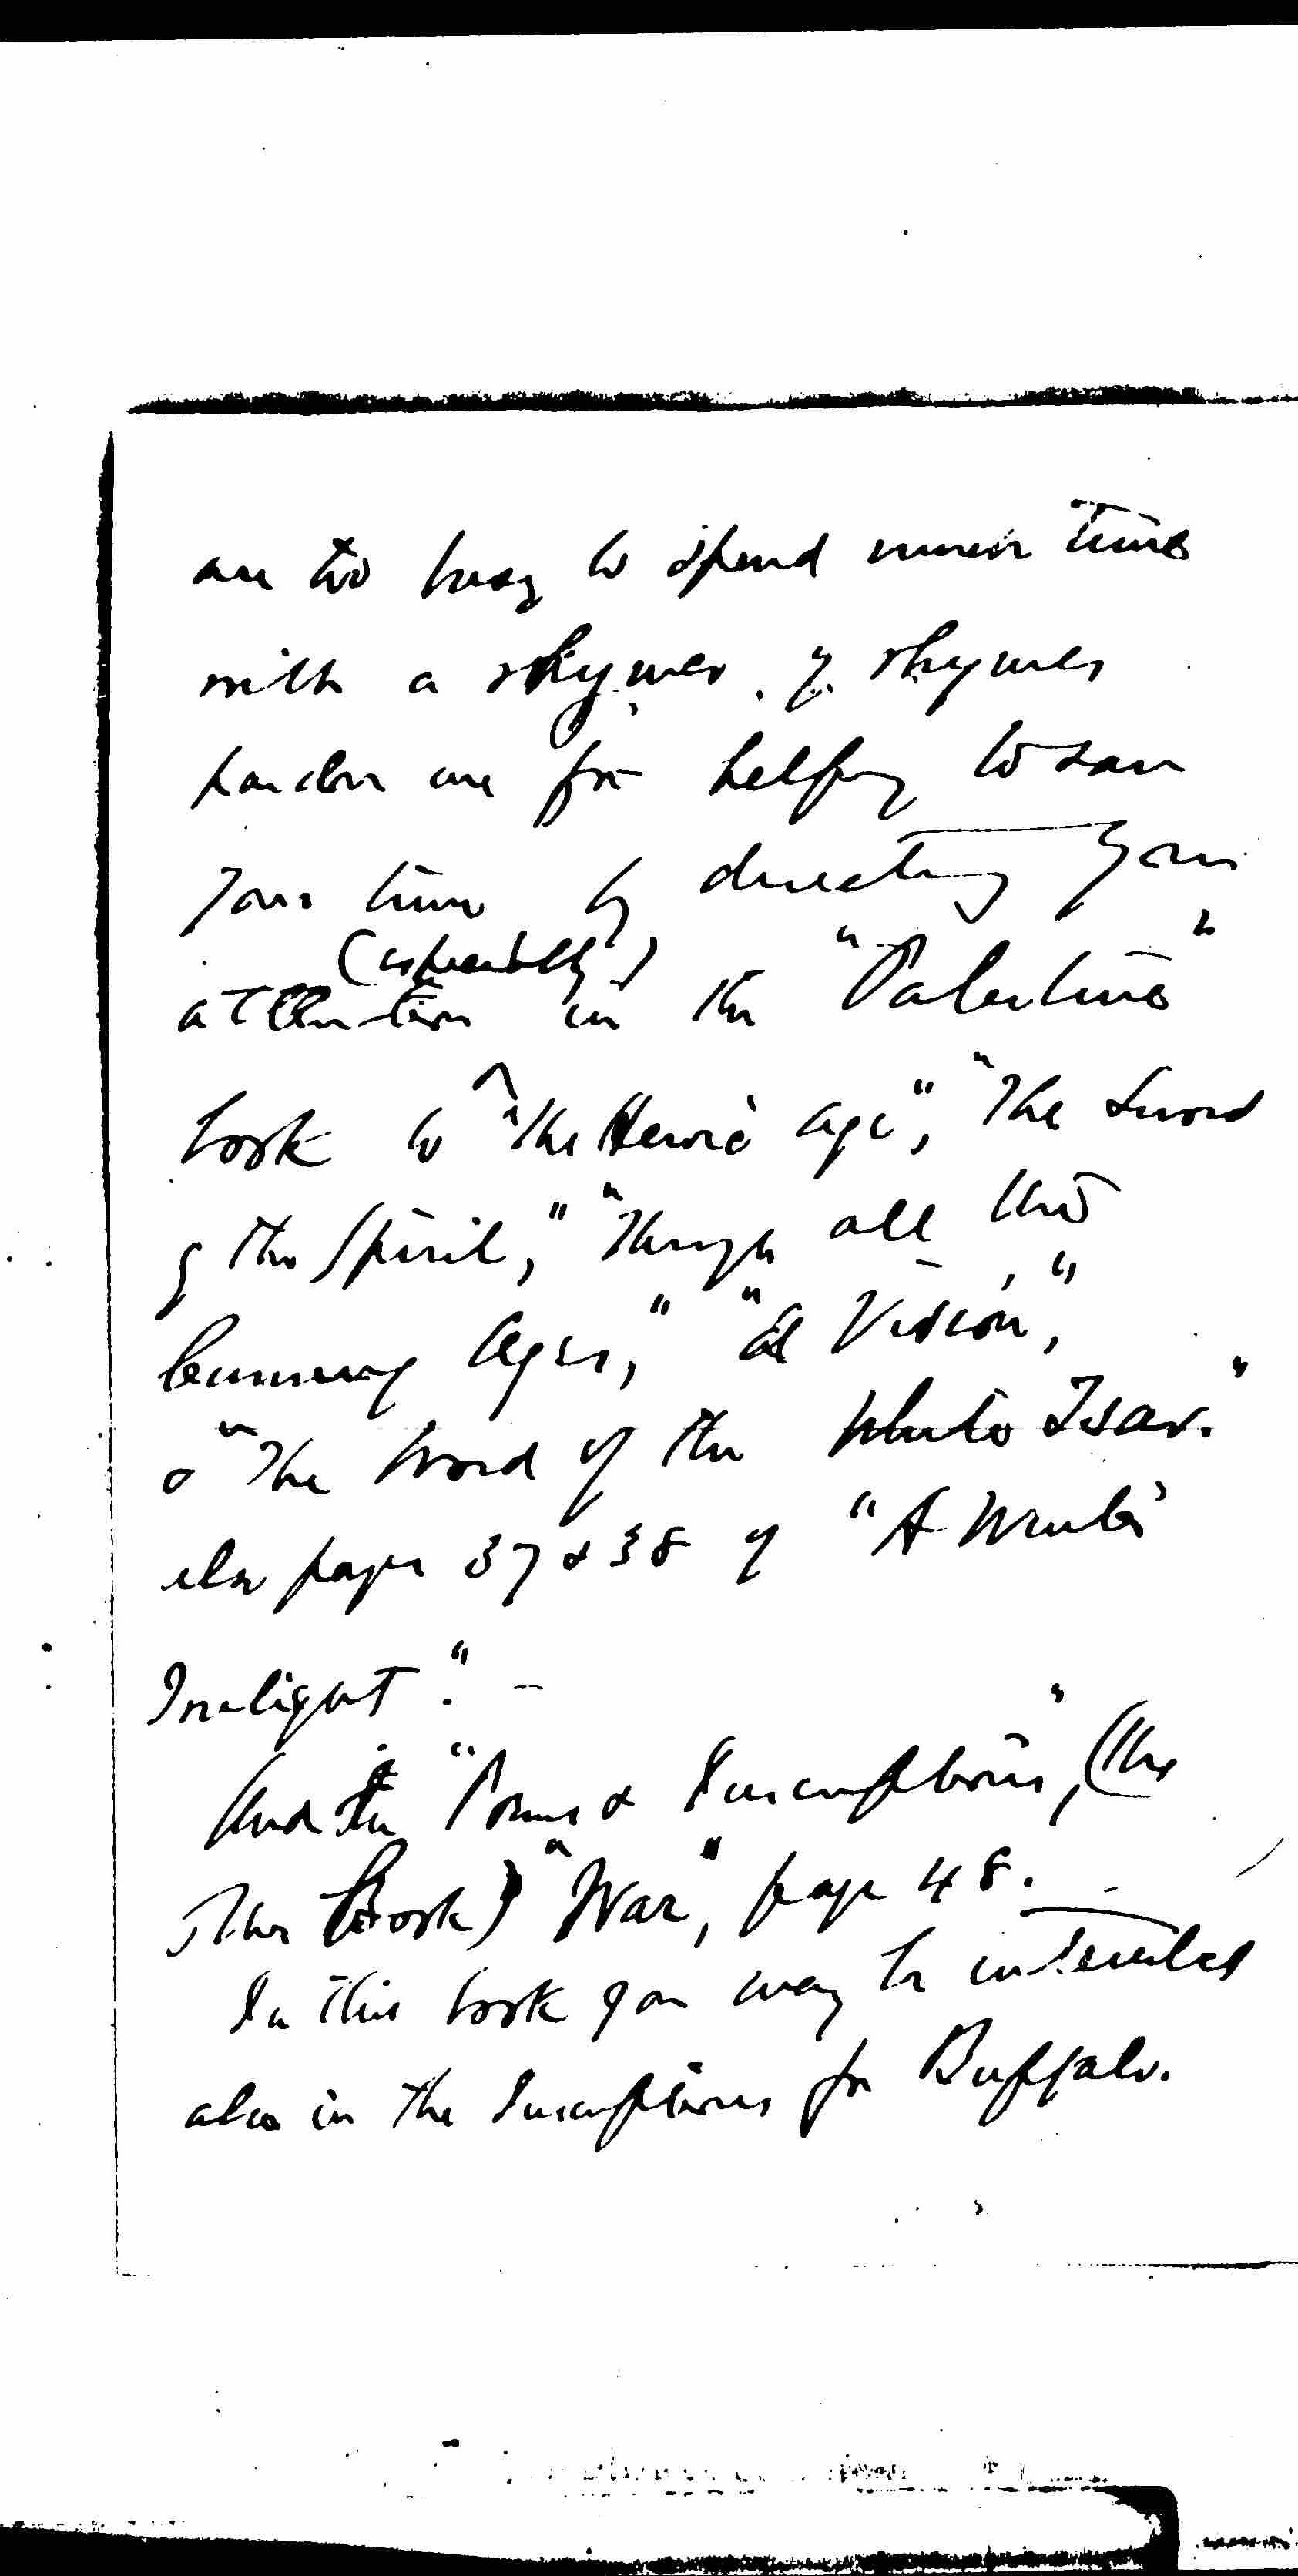 are too busy to spend much time
with a rhymer of rhymes
pardon me for helping to save
your time by directing your
(especially)
attention in the "Palestine"
book to "The Heroic Age", "The Sword
of the Spirit," "Through all the
Cunning Ages," "A Vision,"
& "The Word of the White Tsar."
also pages 37 & 38 of "A Winter
Twilight". –
And in "Poems & Inscriptions", (the
other Book) "War", page 48.
In this book you may be interested
also in the Inscriptions for Buffalo.